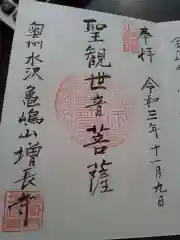 奉拝
令和三年十一月九日
聖観世音菩薩
奥州水沢
亀嶋山増長寺